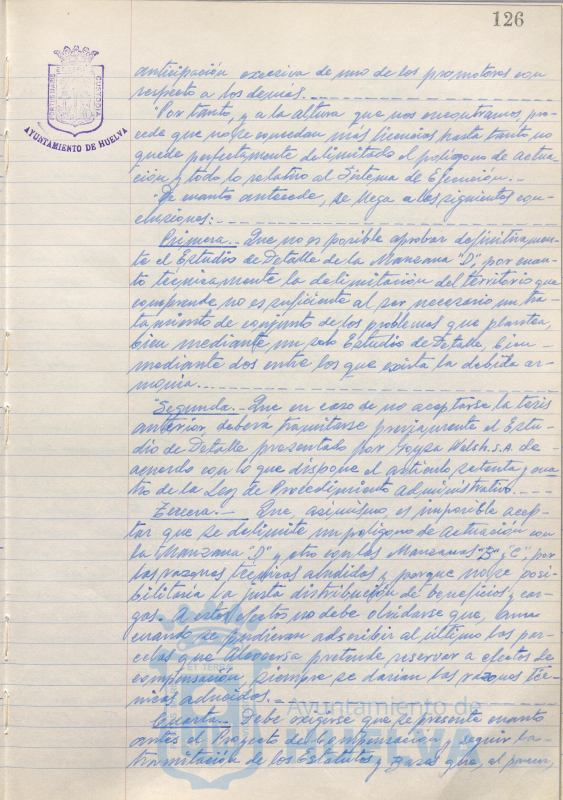 126
PORTUS MARIS
CUSTODIA
AYUNTAMIENTO DE HUELVA
anticipación excesiva de uno de los promotores con
respecto a los demás.
"Por tanto, y a la altura que nos encontramos, pro-
cede que no se concedan más licencias hasta tanto no
quede perfectamente delimitado el polígono de actua-
ción y todo lo relativo al Sistema de Ejecución.-
"De cuanto antecede, se llega a las siguientes con-
clusiones:
Primera.- Que no es posible aprobar definitivamen-
te el Estudio de Detalle de la Manzana "D" por cuan-
to técnicamente la delimitación del territorio que
comprende no es suficiente al ser necesario un tra-
tamiento de conjunto de los problemas que plantea,
bien mediante un solo Estudio de Detalle, bien-
mediante dos entre los que exista la debida ar-
monía.
"Segunda.- Que en caso de no aceptarse la tesis
anterior, deberá tramitarse previamente el Estu-
dio de Detalle presentado por Welsh. S.A. de
acuerdo con lo que dispone el artículo setenta y cua-
tro de la Ley de Procedimiento Administrativo.
Tercera.- Que, asimismo, es imposible acep-
tar que se delimite un polígono de actuación con
la Manzana "D" y otro con las Manzanas "B" y "C", por
las razones técnicas aludidas y porque no se posi-
bilitaría la justa distribución de beneficios y car-
gas. A estos efectos, no debe olvidarse que, aun
cuando se pudieran adscribir al último las par-
celas que pretende reservar a efectos de
compensación, siempre se darían las razones téc-
nicas aducidas.-
Cuarta.- Debe exigirse que se presente cuanto
antes el Proyecto de Compensación y seguir la
tramitación de los Estatutos y Bases que, al parecer,
Ayuntamiento de
HUELVA